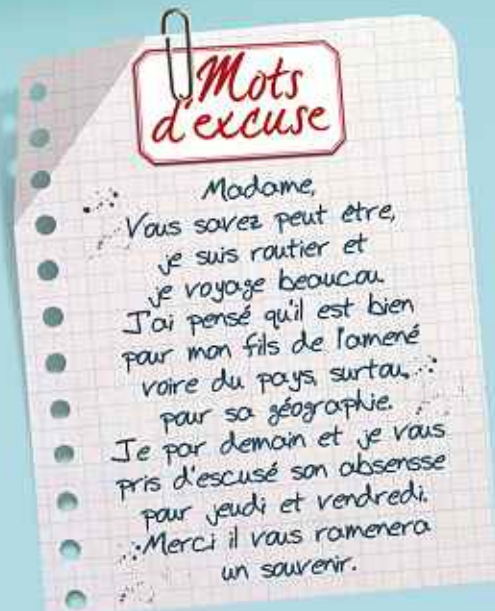 Mots
d'excuse
Madame,
Vous savez peut être,
je suis routier et
je voyage beaucou.
J'ai pensé qu'il est bien
pour mon fils de l'amené
voire du pays, surtou,
pour sa géographie.
Je par demain et je vous
pris d'escusé son absensse
pour jeudi et vendredi.
Merci il vous ramenera
un souvenir.